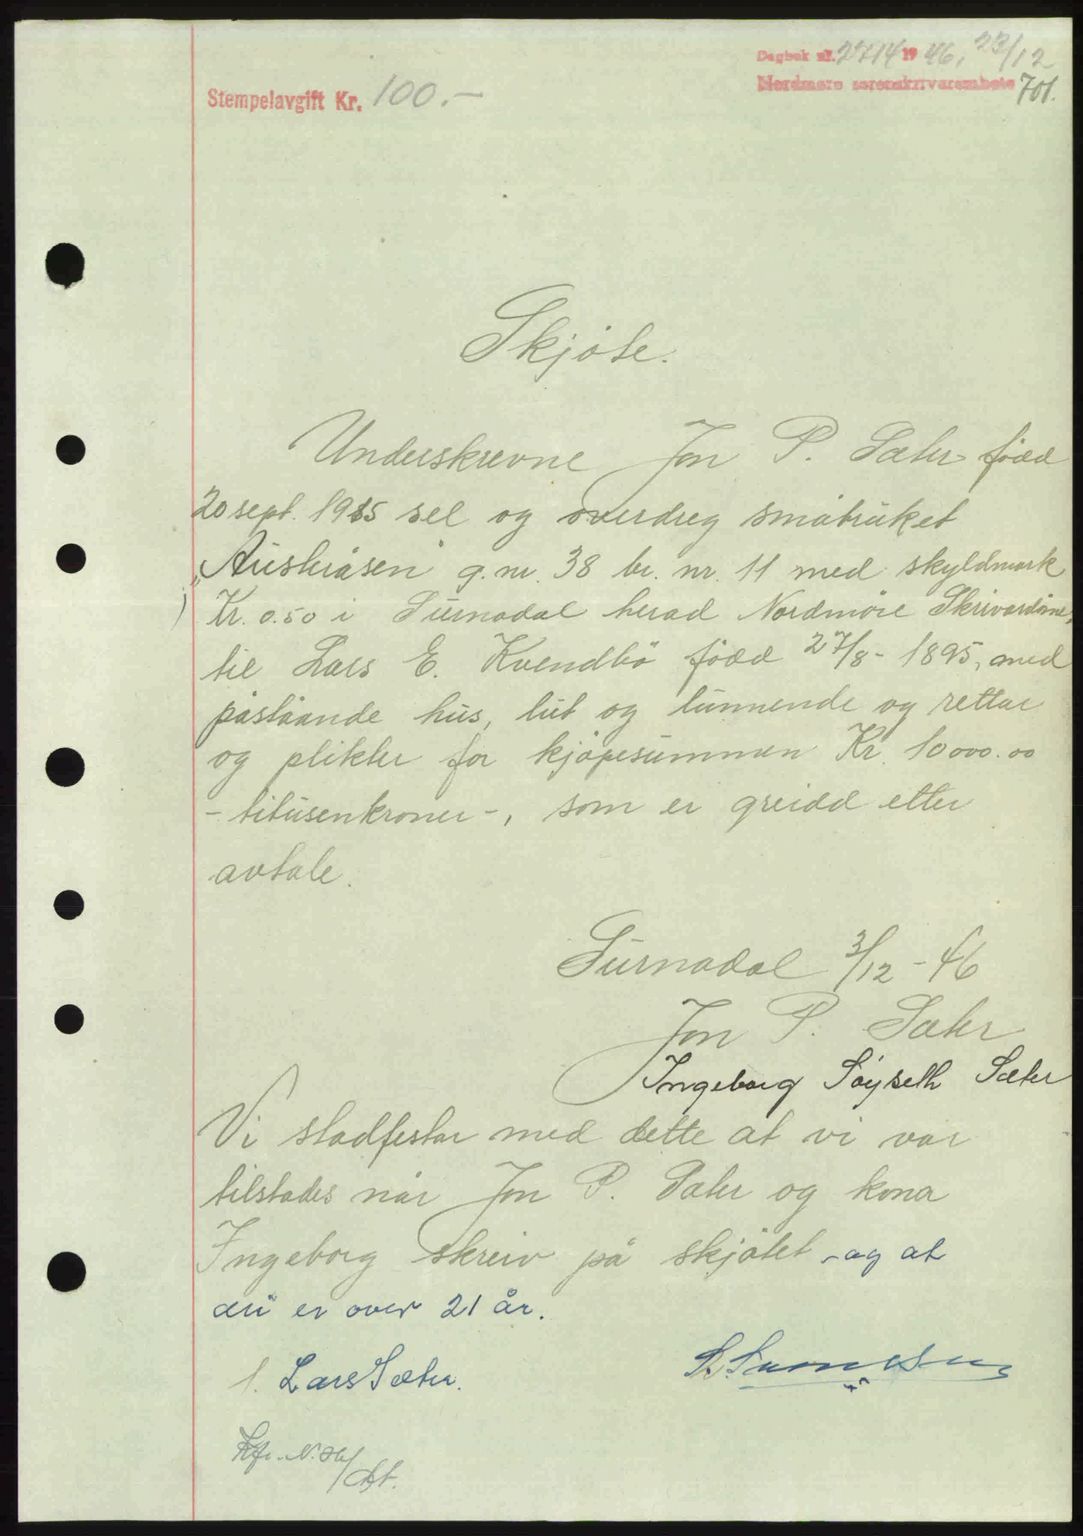 Dagbok nr. 2714 19 46, 23/12
Nordmøre sorenskriverembete 701.
Stempelavgift Kr. 100.-
Skjøte.
Underskrevne Jon P. Sæter fødd
20 sept. 1915 sel og overdreg småbruket
"Austeråsen" g.nr. 38 br. nr. 11 med skyldmark
Kr. 0.50 i Surnadal herad Nordmøre
til Lars E. Kvendbö född 27/8 - 1895, med
påståande hus, lut og lunnende og rettar
og plikter for kjöpesummen Kr. 10000.00
- titusenkroner -, som er greidd etter
avtale.
Surnadal 3/12 - 46
Jon P. Sæter
Ingeborg Söyseth Sæter
Vi stadfestar med dette at vi var
tilstades når Jon P. Sæter og kona
Ingeborg skreiv på skjötet - og at
dei er over 21 år.
1. Lars Sæter.